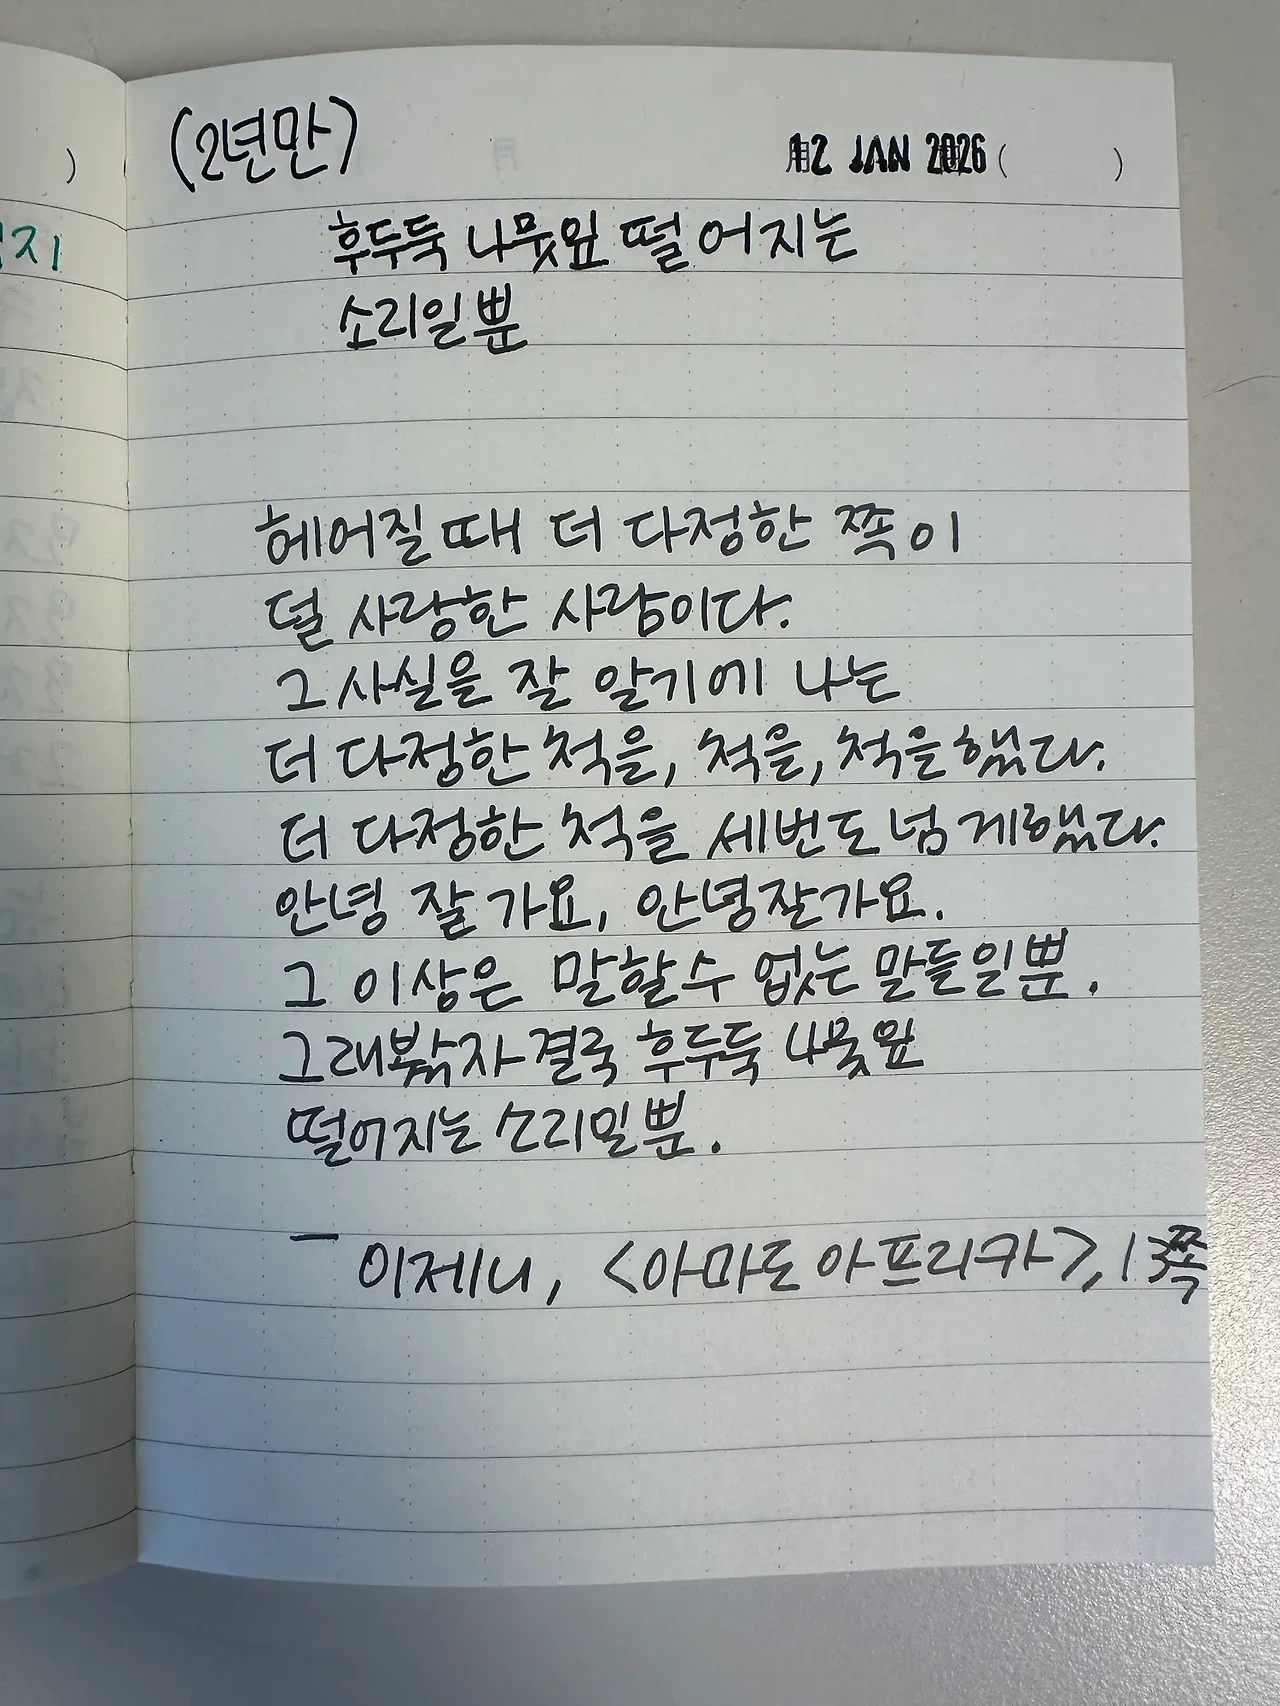 (2년만)
12 JAN 2026 ( )
후두둑 나뭇잎 떨어지는
소리일뿐
헤어질 때 더 다정한 쪽이
덜 사랑한 사람이다.
그 사실을 잘 알기에 나는
더 다정한 척을, 척을, 척을 했다.
더 다정한 척을 세번도 넘게했다.
안녕 잘 가요, 안녕잘가요.
그 이상은 말할 수 없는 말들일뿐.
그래봤자 결국 후두둑 나뭇잎
떨어지는 소리일뿐.
- 이제니, <아마도 아프리카>, 13쪽